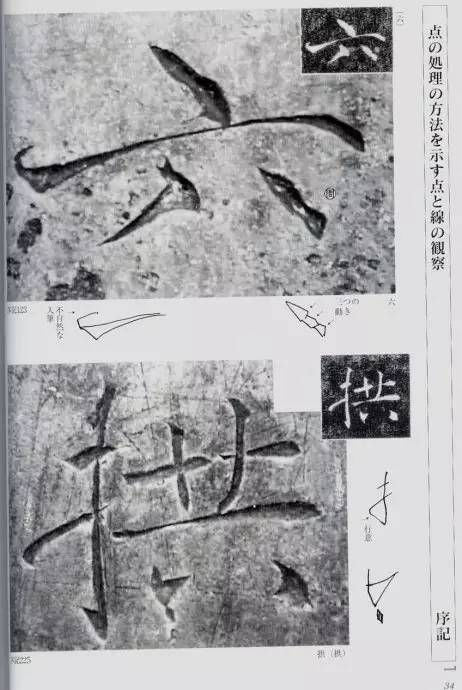 点の処理の方法を示す点と線の観察
序記
34
(六)
六
六
周
六
三つの
動き
不自然な
入筆
NR223
拱
拱
行意
拱(拱)
NR225